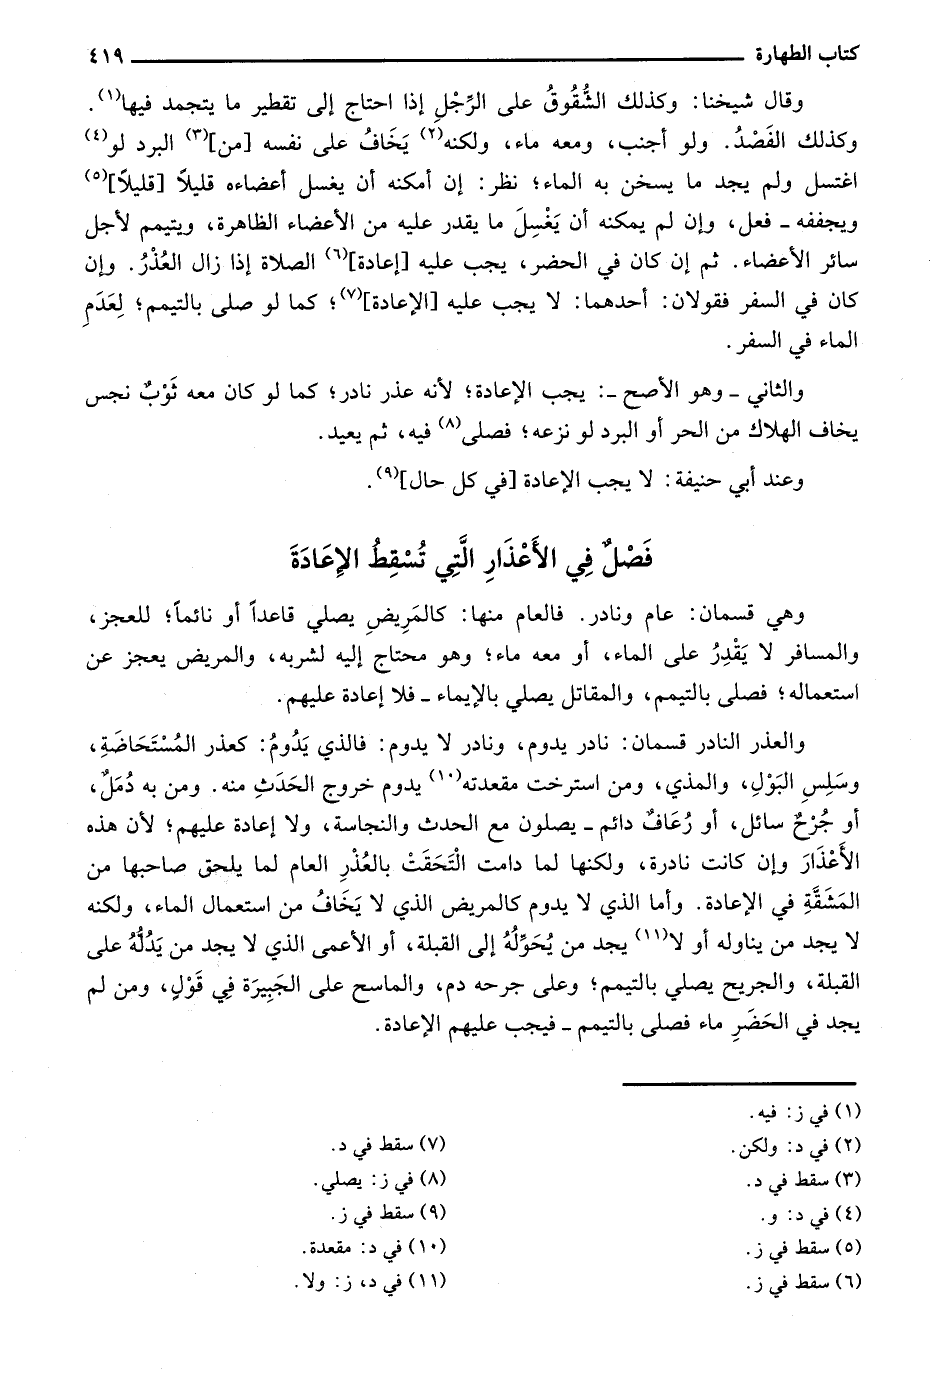 كتاب الطهارة ٤١٩
وقال شيخنا: وكذلك الشُّقُوقُ على الرِّجْلِ إذا احتاج إلى تقطير ما يتجمد فيها(١).
وكذلك الفَصْدُ. ولو أجنب، ومعه ماء، ولكنه(٢) يَخَافُ على نفسه [من](٣) البرد لو(٤)
اغتسل ولم يجد ما يسخن به الماء؛ نظر: إن أمكنه أن يغسل أعضاءه قليلاً [قليلاً](٥)
ويجففه ـ فعل، وإن لم يمكنه أن يَغْسِلَ ما يقدر عليه من الأعضاء الظاهرة، ويتيمم لأجل
سائر الأعضاء. ثم إن كان في الحضر، يجب عليه [إعادة](٦) الصلاة إذا زال العُذْرُ. وإن
كان في السفر فقولان: أحدهما: لا يجب عليه [الإعادة](٧)؛ كما لو صلى بالتيمم؛ لِعَدَمِ
الماء في السفر.
والثاني ـ وهو الأصح ـ: يجب الإعادة؛ لأنه عذر نادر؛ كما لو كان معه ثَوْبٌ نجس
يخاف الهلاك من الحر أو البرد لو نزعه؛ فصلى(٨) فيه، ثم يعيد.
وعند أبي حنيفة: لا يجب الإعادة [في كل حال](٩).
فَصْلٌ فِي الأَعْذَارِ الَّتِي تُسْقِطُ الإِعَادَةَ
وهي قسمان: عام ونادر. فالعام منها: كالمَرِيضِ يصلي قاعداً أو نائماً؛ للعجز،
والمسافر لا يَقْدِرُ على الماء، أو معه ماء؛ وهو محتاج إليه لشربه، والمريض يعجز عن
استعماله؛ فصلى بالتيمم، والمقاتل يصلي بالإيماء ـ فلا إعادة عليهم.
والعذر النادر قسمان: نادر يدوم، ونادر لا يدوم: فالذي يَدُومُ: كعذر المُسْتَحَاضَةِ،
وسَلِسِ البَوْلِ، والمذي، ومن استرخت مقعدته(١٠) يدوم خروج الحَدَثِ منه. ومن به دُمَلٌ،
أو جُرْحٌ سائل، أو رُعَافٌ دائم ـ يصلون مع الحدث والنجاسة، ولا إعادة عليهم؛ لأن هذه
الأَعْذَارَ وإن كانت نادرة، ولكنها لما دامت الْتَحَقَتْ بالعُذْرِ العام لما يلحق صاحبها من
المَشَقَّةِ في الإعادة. وأما الذي لا يدوم كالمريض الذي لا يَخَافُ من استعمال الماء، ولكنه
لا يجد من يناوله أو لا(١١) يجد من يُحَوِّلُهُ إلى القبلة، أو الأعمى الذي لا يجد من يَدُلُّهُ على
القبلة، والجريح يصلي بالتيمم؛ وعلى جرحه دم، والماسح على الجَبِيرَة فِي قَوْلٍ، ومن لم
يجد في الحَضَرِ ماء فصلى بالتيمم ـ فيجب عليهم الإعادة.
(١) في ز: فيه.
(٢) في د: ولكن.
(٣) سقط في د.
(٤) في د: و.
(٥) سقط في ز.
(٦) سقط في ز.
(٧) سقط في د.
(٨) في ز: يصلي.
(٩) سقط في ز.
(١٠) في د: مقعدة.
(١١) في د، ز: ولا.